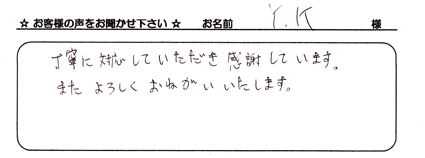 ☆ お客様の声をお聞かせ下さい ☆ お名前 Y.K 様
丁寧に対応していただき感謝しています。
また よろしく おねがい いたします。